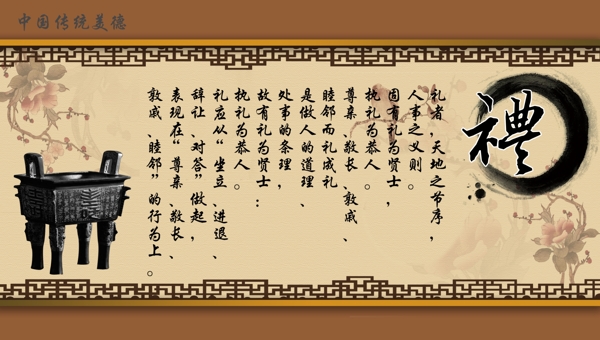 中国传统美德
禮
礼者，天地之节序，
人事之义则。
固有礼为贤士，
执礼为恭人。
尊亲、敬长、敦戚、
睦邻而礼成礼
是做人的道理、
处事的条理，
故有礼为贤士：
执礼为恭人。
礼应从“坐立、进退、
辞让、对答”做起，
表现在“尊亲、敬长、
敦戚、睦邻”的行为上。